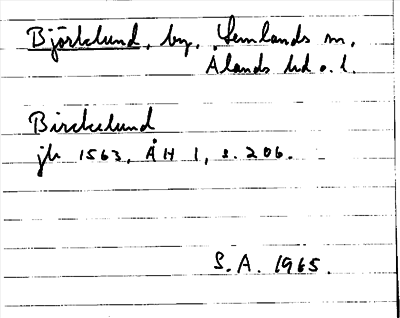 Björklund, by, Lemlands sn,
Ålands hd o. l.
Birckelund
jb 1563, ÅH 1, s. 206.
S.A. 1965.